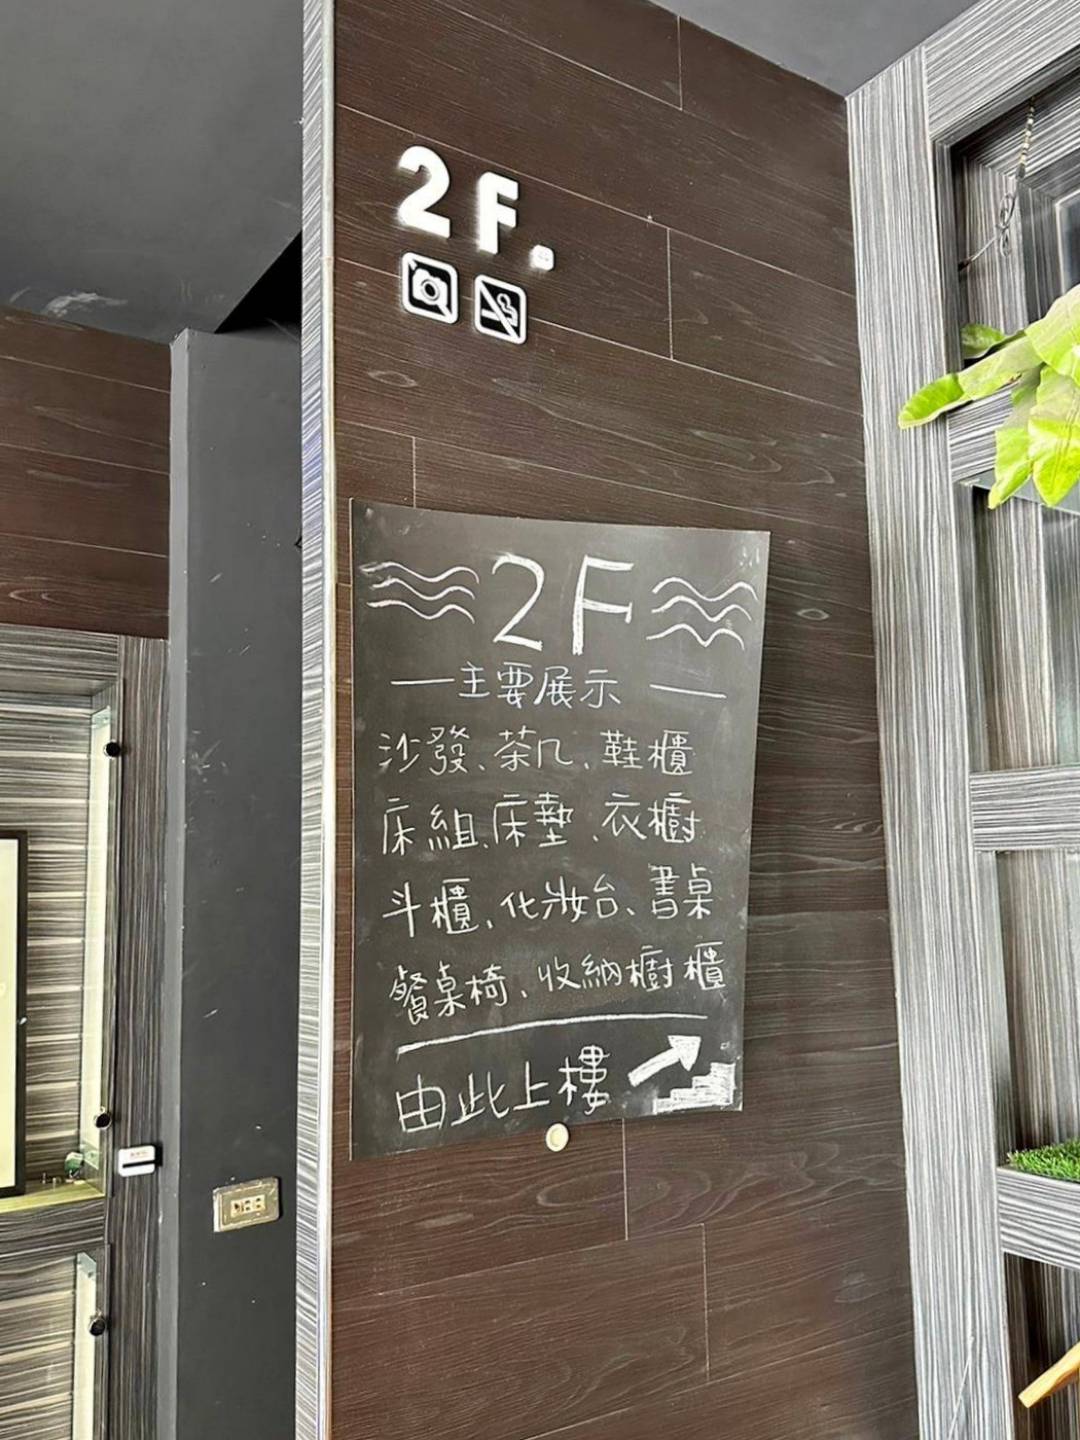 2F.
2F
主要展示
沙發、茶几、鞋櫃
床組、床墊、衣櫥
斗櫃、化妝台、書桌
餐桌椅、收納櫥櫃
由此上樓